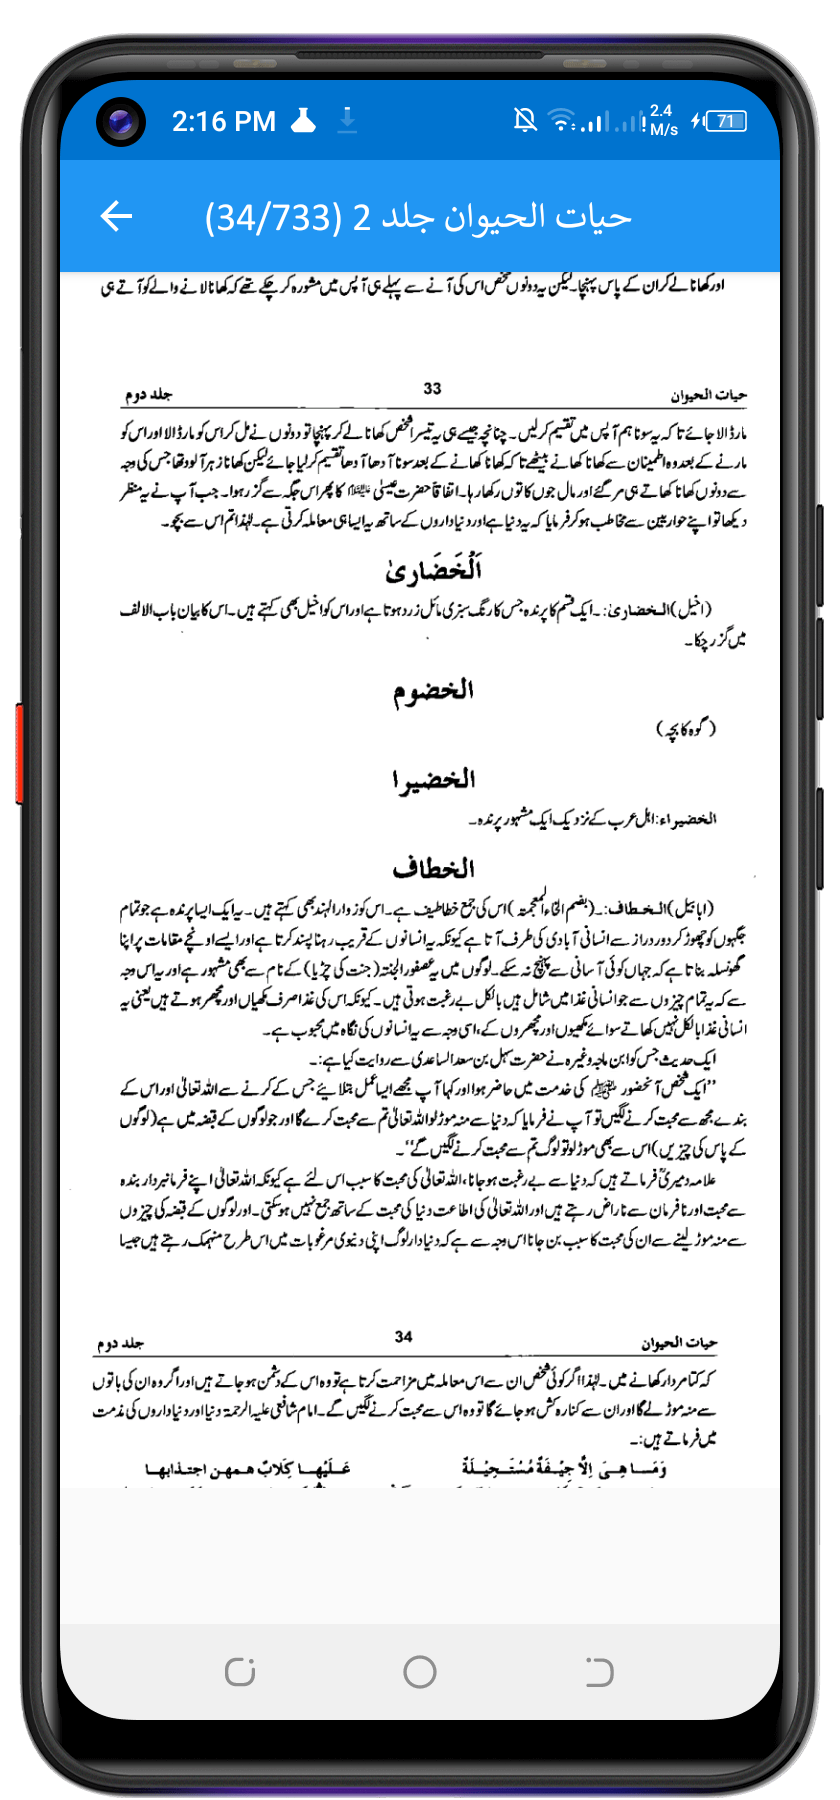 2:16 PM 2.4 M/s 71
حیات الحیوان جلد 2 (34/733)
اور کھانا لے کر ان کے پاس پہنچا۔ لیکن یہ دونوں شخص اس کی آنے سے پہلے ہی آپس میں مشورہ کر چکے تھے کہ کھانا لانے والے کو آتے ہی
حیات الحیوان 33 جلد دوم
مار ڈالا جائے تاکہ یہ سونا ہم آپس میں تقسیم کر لیں۔ چنانچہ جیسے ہی یہ تیسرا شخص کھانا لے کر پہنچا تو دونوں نے مل کر اس کو مار ڈالا اور اس کو
مارنے کے بعد وہ اطمینان سے کھانا کھانے بیٹھے تاکہ کھانا کھانے کے بعد سونا آدھا آدھا تقسیم کر لیا جائے لیکن کھانا زہر آلود تھا جس کی وجہ
سے دونوں کھانا کھاتے ہی مر گئے اور مال جوں کا توں رکھا رہا۔ اتفاقاً حضرت عیسیٰ علیہ السلام کا پھر اس جگہ سے گزر ہوا۔ جب آپ نے یہ منظر
دیکھا تو اپنے حواریین سے مخاطب ہو کر فرمایا کہ یہ دنیا ہے اور دنیا داروں کے ساتھ یہ ایسا ہی معاملہ کرتی ہے۔ لہٰذا تم اس سے بچو۔
اَلْخَضَاریٰ
(اخیل) الخضاریٰ:۔ ایک قسم کا پرندہ جس کا رنگ سبزی مائل زرد ہوتا ہے اور اس کو اخیل بھی کہتے ہیں۔ اس کا بیان باب الالف
میں گزر چکا۔
الخضوم
(گوہ کا بچہ)
الخضیرا
الخضیراء: اہل عرب کے نزدیک ایک مشہور پرندہ۔
الخطاف
(ابابیل) الخطاف:۔ (بضم الخاء المعجمتہ) اس کی جمع خطاطیف ہے۔ اس کو زوار الہند بھی کہتے ہیں۔ یہ ایک ایسا پرندہ ہے جو تمام
جگہوں کو چھوڑ کر دور دراز سے انسانی آبادی کی طرف آتا ہے کیونکہ یہ انسانوں کے قریب رہنا پسند کرتا ہے اور ایسے اونچے مقامات پر اپنا
گھونسلہ بناتا ہے کہ جہاں کوئی آسانی سے پہنچ نہ سکے۔ لوگوں میں یہ عصفور الجنتہ (جنت کی چڑیا) کے نام سے بھی مشہور ہے اور یہ اس وجہ
سے کہ یہ تمام چیزوں سے جو انسانی غذا میں شامل ہیں بالکل بے رغبت ہوتی ہیں۔ کیونکہ اس کی غذا صرف مکھیاں اور مچھر ہوتے ہیں یعنی یہ
انسانی غذا بالکل نہیں کھاتے سوائے مکھیوں اور مچھروں کے، اسی وجہ سے یہ انسانوں کی نگاہ میں محبوب ہے۔
ایک حدیث جس کو ابن ماجہ وغیرہ نے حضرت سہل بن سعد الساعدی سے روایت کیا ہے:۔
"ایک شخص آنحضور ﷺ کی خدمت میں حاضر ہوا اور کہا آپ مجھے ایسا عمل بتلائیے جس کے کرنے سے اللہ تعالیٰ اور اس کے
بندے مجھ سے محبت کرنے لگیں تو آپ نے فرمایا کہ دنیا سے منہ موڑ لو اللہ تعالیٰ تم سے محبت کرے گا اور جو لوگوں کے قبضہ میں ہے (لوگوں
کے پاس کی چیزیں) اس سے بھی موڑ لو تو لوگ تم سے محبت کرنے لگیں گے"۔
علامہ دمیریؒ فرماتے ہیں کہ دنیا سے بے رغبت ہو جانا، اللہ تعالیٰ کی محبت کا سبب اس لئے ہے کیونکہ اللہ تعالیٰ اپنے فرمانبردار بندہ
سے محبت اور نافرمان سے ناراض رہتے ہیں اور اللہ تعالیٰ کی اطاعت دنیا کی محبت کے ساتھ جمع نہیں ہو سکتی۔ اور لوگوں کے قبضہ کی چیزوں
سے منہ موڑ لینے سے ان کی محبت کا سبب بن جانا اس وجہ سے ہے کہ دنیا دار لوگ اپنی دنیوی مرغوبات میں اس طرح منہمک رہتے ہیں جیسا
حیات الحیوان 34 جلد دوم
کہ کتا مردار کھانے میں۔ لہٰذا اگر کوئی شخص ان سے اس معاملہ میں مزاحمت کرتا ہے تو وہ اس کے دشمن ہو جاتے ہیں اور اگر وہ ان کی باتوں
سے منہ موڑ لے گا اور ان سے کنارہ کش ہو جائے گا تو وہ اس سے محبت کرنے لگیں گے۔ امام شافعی علیہ الرحمتہ دنیا اور دنیا داروں کی مذمت
میں فرماتے ہیں:۔
وَمَا هِىَ اِلَّا جِيْفَةٌ مُسْتَحِيْلَةٌ عَلَيْهَا كِلَابٌ همهن اجتذابها